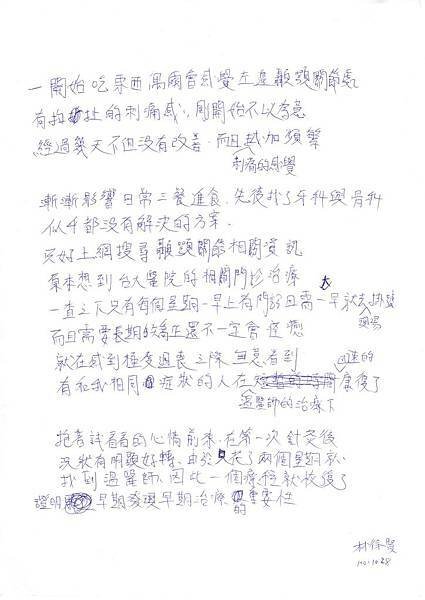 一開始吃東西偶爾會感覺左邊顳顎關節處
有拉扯的刺痛感，剛開始不以為意
經過幾天不但沒有改善，而且越加頻繁
刺痛的感覺
漸漸影響日常三餐進食，先後找了牙科與骨科
似乎都沒有解決的方案，
只好上網搜尋顳顎關節相關資訊
原本想到台大醫院的相關門診治療
一查之下只有每個星期一早上有門診且需一大早就去掛號
現場
而且需要長期的矯正還不一定會痊癒
就在感到極度沮喪之際無意看到
有和我相同症狀的人在
康復了
溫醫師的治療下
抱著試看看的心情前來，在第一次針灸後
況狀有明顯好轉，由於只花了兩個星期就
找到溫醫師，因此一個療程就恢復了
證明早期發現早期治療的重要性
100.10.28